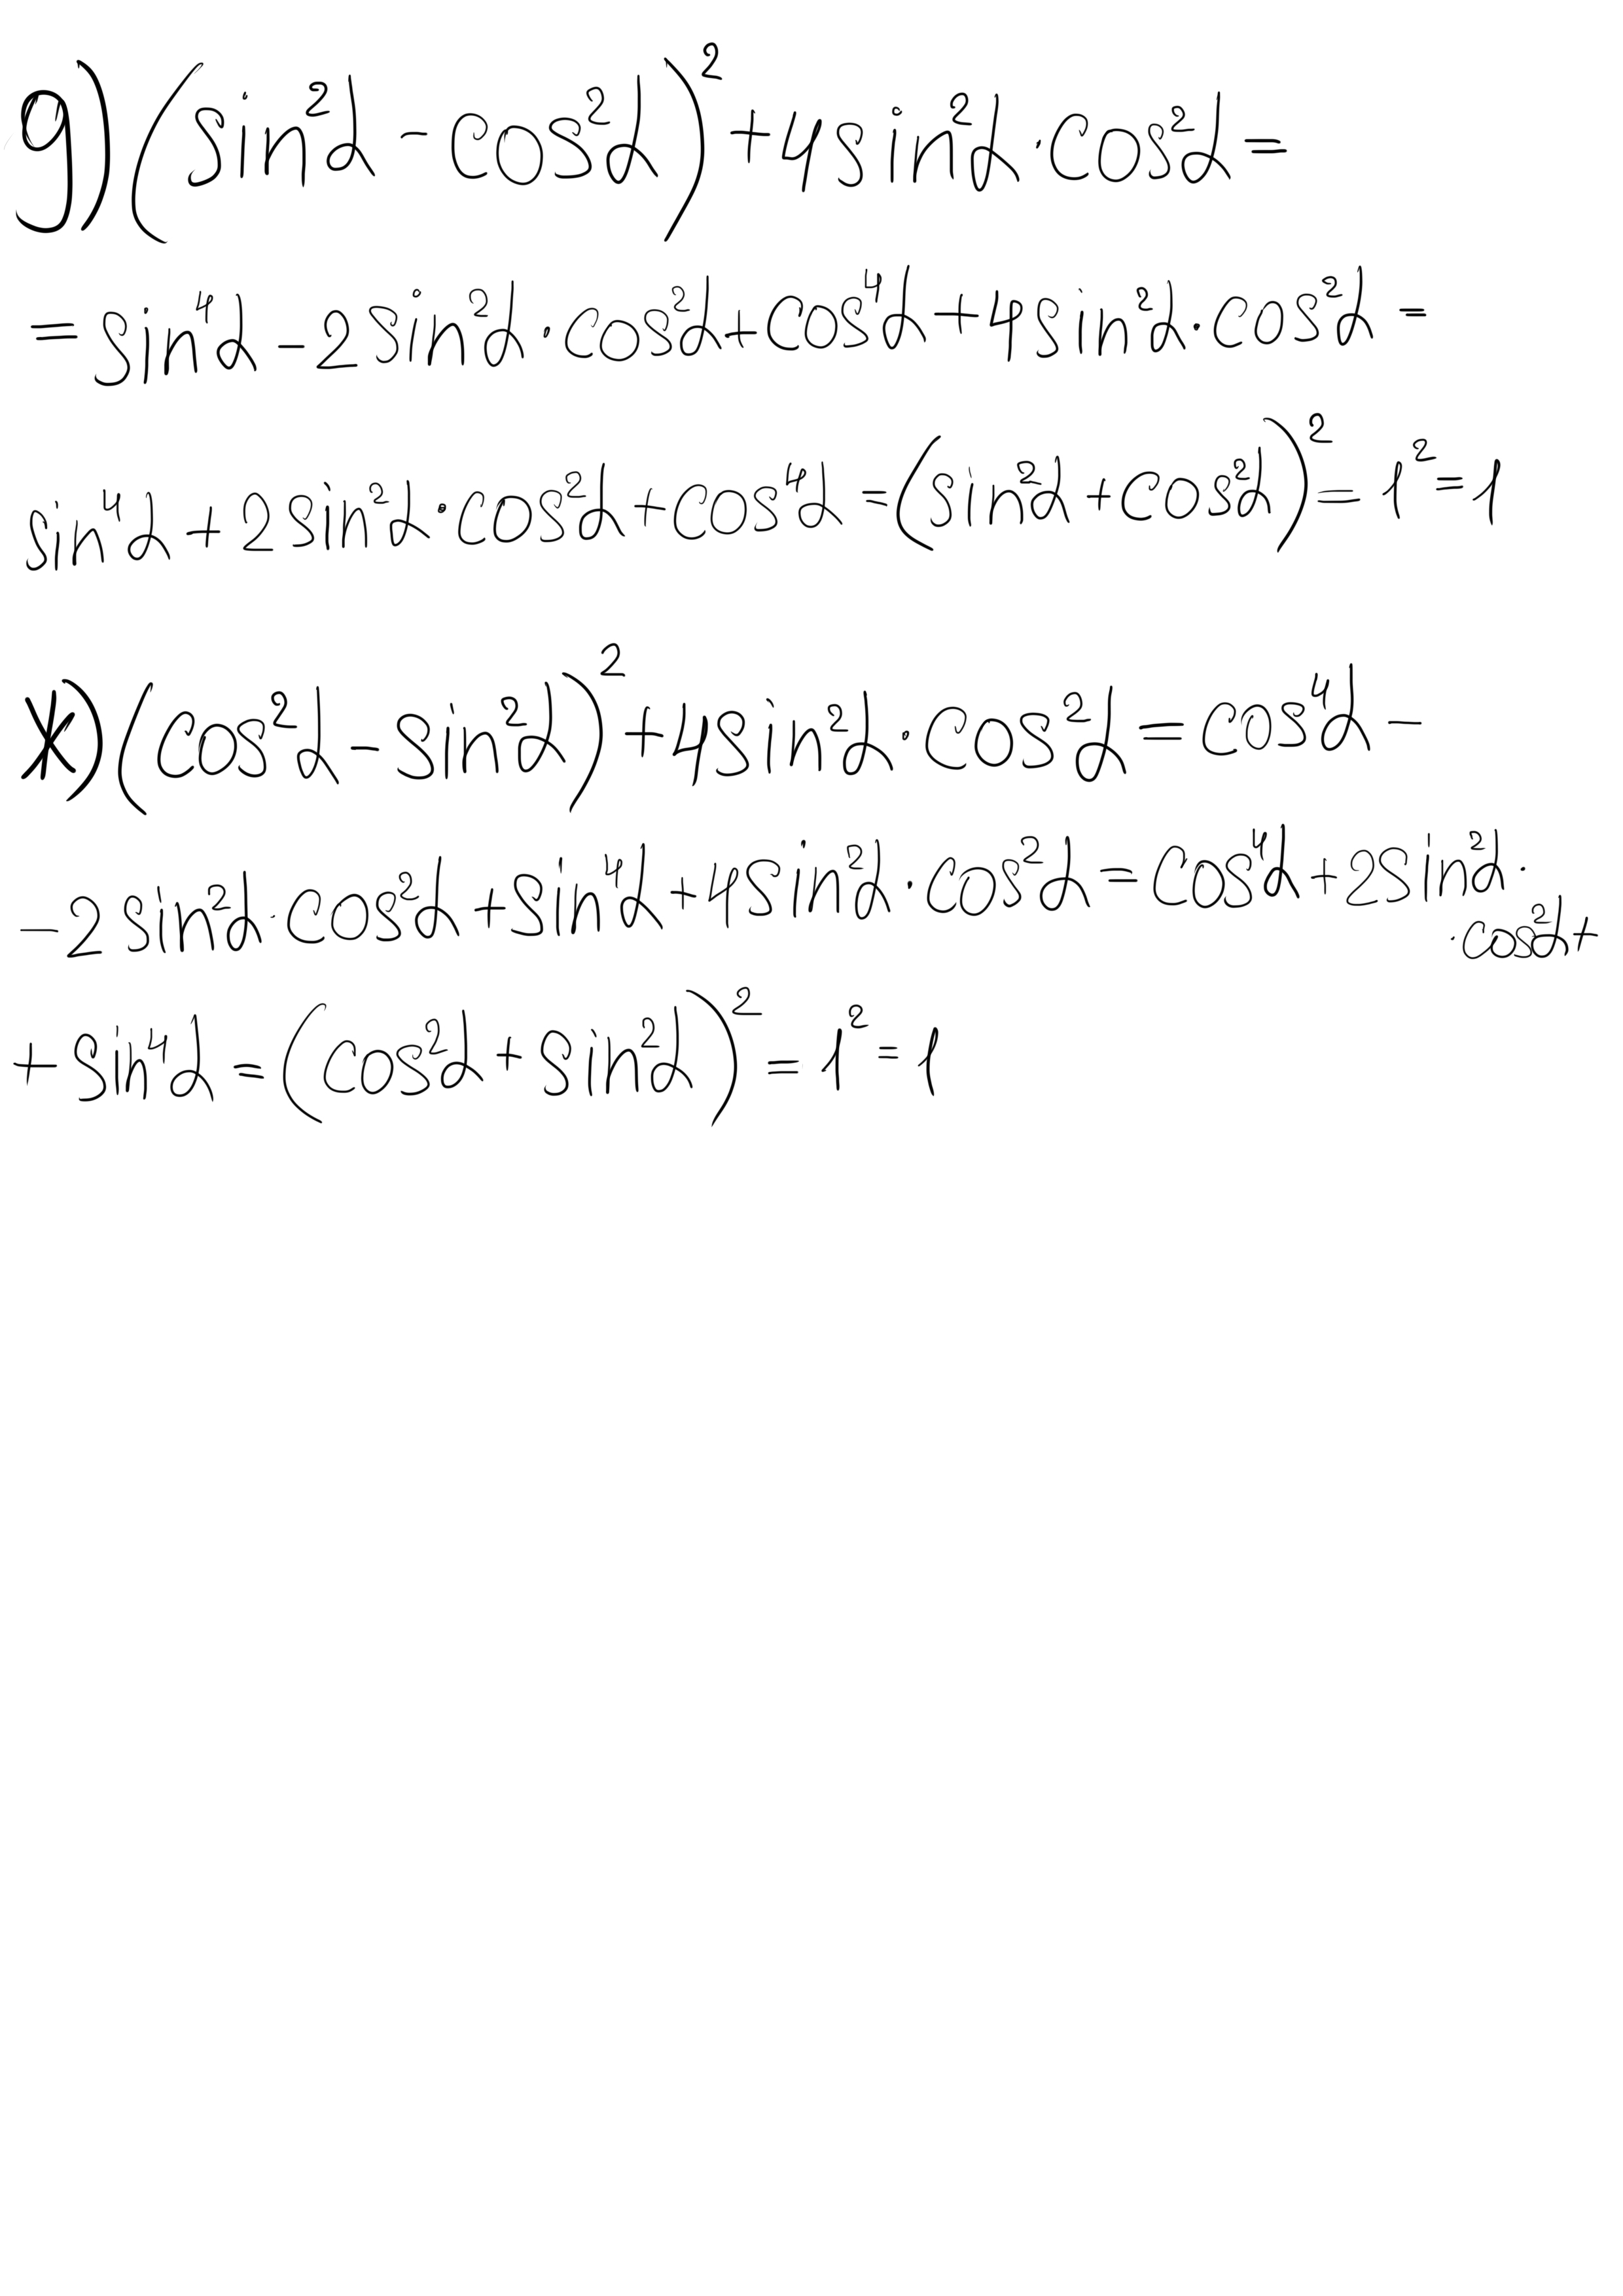 g) (sin²α - cos²α)² + 4sin²α · cos²α =
= sin⁴α - 2sin²α · cos²α + cos⁴α + 4sin²α · cos²α =
sin⁴α + 2sin²α · cos²α + cos⁴α = (sin²α + cos²α)² = 1² = 1
ж) (cos²α - sin²α)² + 4sin²α · cos²α = cos⁴α -
- 2sin²α · cos²α + sin⁴α + 4sin²α · cos²α = cos⁴α + 2sin²α ·
· cos²α +
+ sin⁴α = (cos²α + sin²α)² = 1² = 1